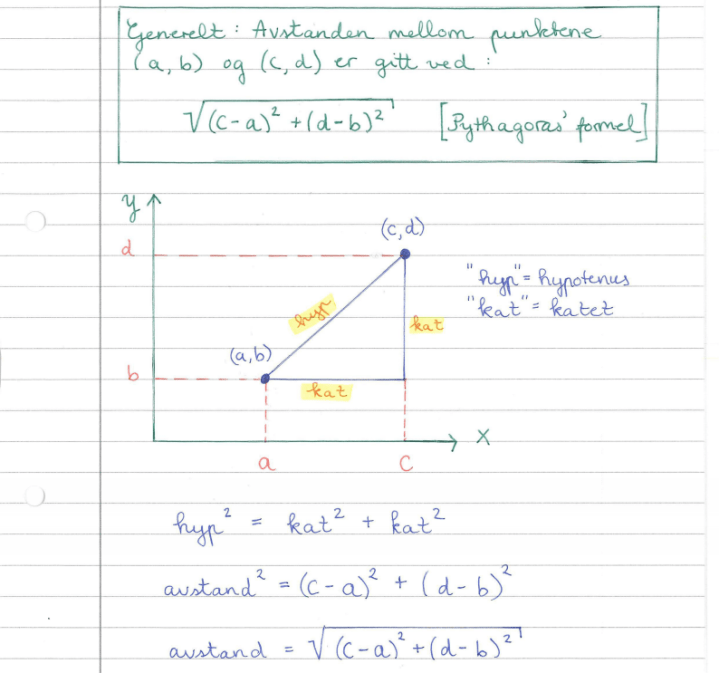 Generelt: Avstanden mellom punktene
(a, b) og (c, d) er gitt ved:
√((c-a)² + (d-b)²) [Pythagoras' formel]
y
(c,d)
d
"hyp" = hypotenus
"kat" = katet
hyp
kat
(a,b)
b
kat
x
a
c
hyp² = kat² + kat²
avstand² = (c-a)² + (d-b)²
avstand = √((c-a)² + (d-b)²)